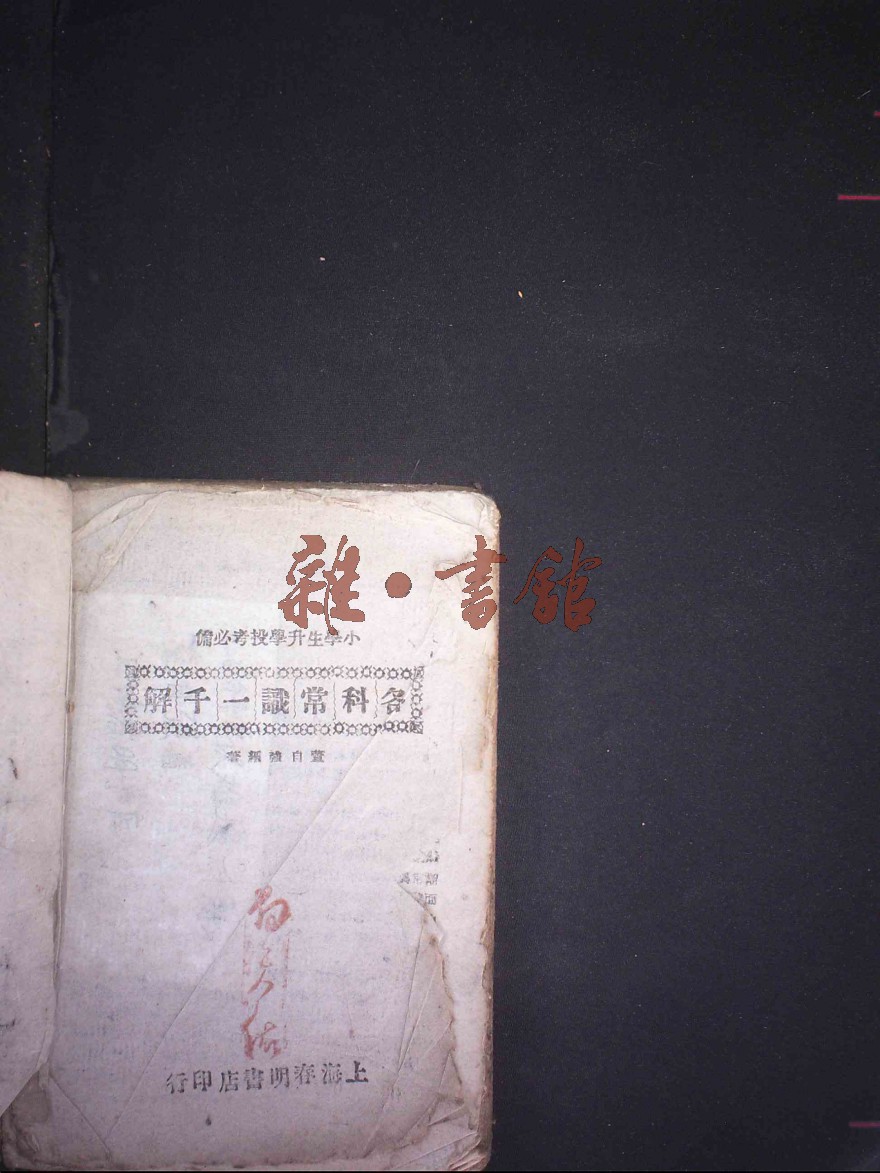 雜·書館
小學生升學投考必備
各科常識一千解
董自強編著
上海春明書店印行